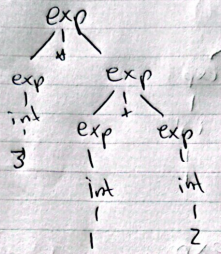 exp
*
exp exp
int +
3 exp exp
int int
1 2